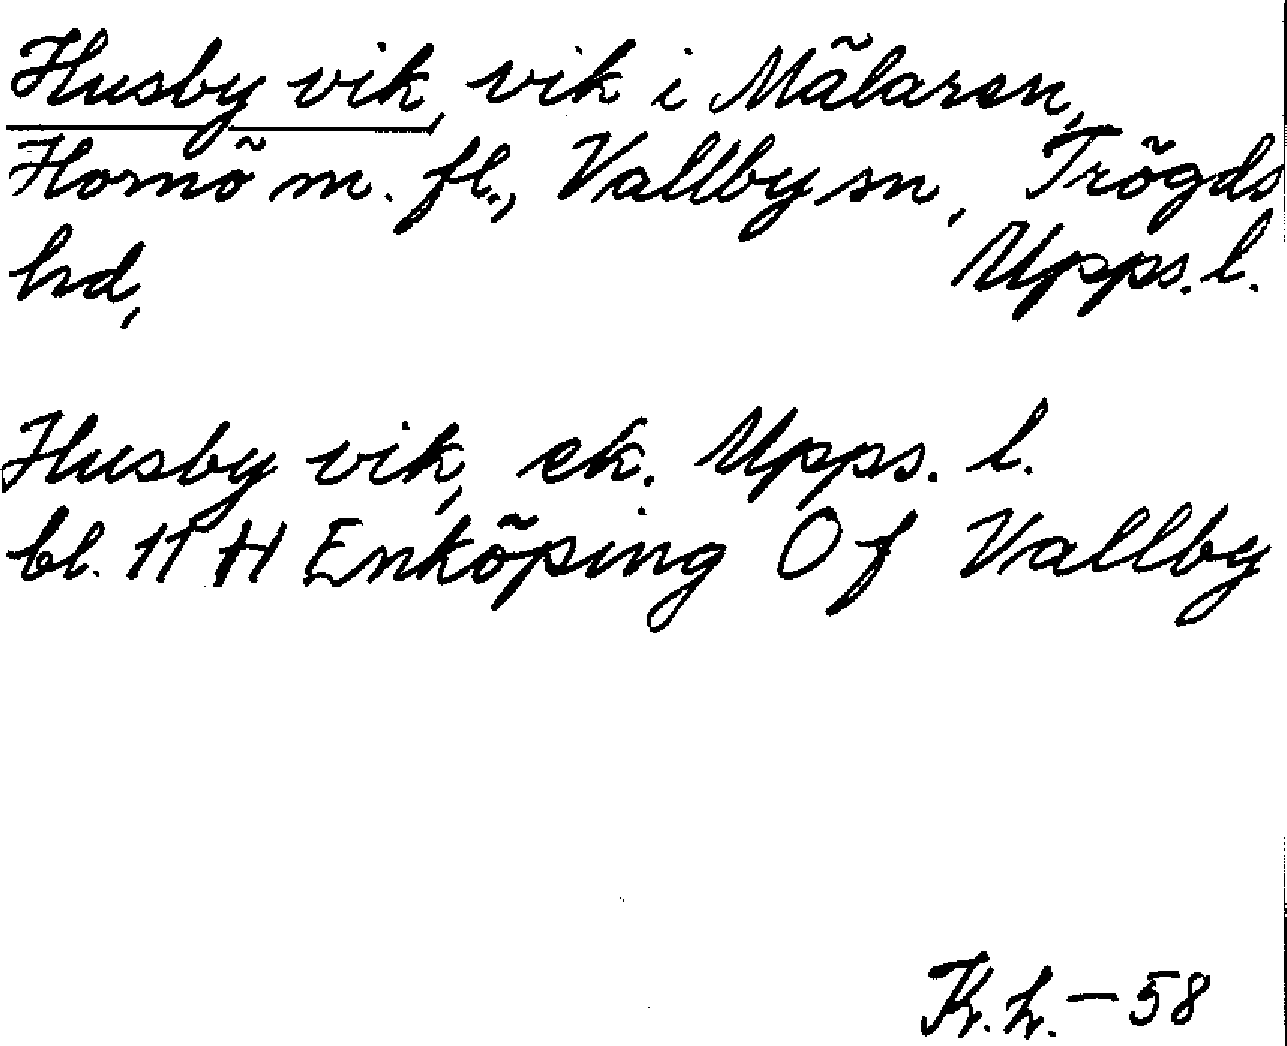 Husby vik, vik i Mälaren,
Hornö m. fl., Vallby sn, Trögds
hd, Upps. l.
Husby vik, ek. Upps. l.
bl. 11 H Enköping O f Vallby
K. L. - 58